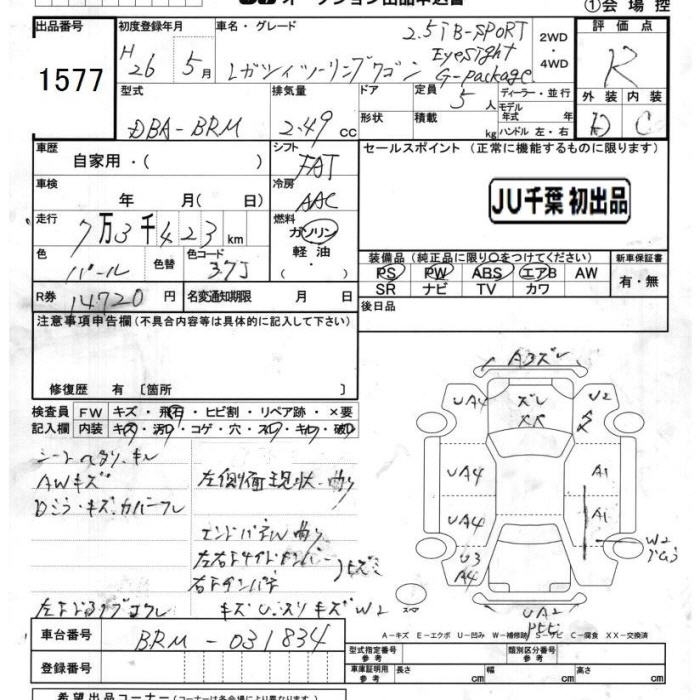 オークション出品申込書 ①会場控
出品番号 初度登録年月 車名・グレード 評価点
2.5i B-SPORT
H 26 5月 レガシィツーリングワゴン EyeSight G-package 2WD・4WD R
1577
型式 排気量 ドア 定員 5人 ディーラー・並行 外装 内装
DBA-BRM 2.49cc 形状 積載 kg モデル年式 年 ハンドル 左・右 D C
車歴 自家用・( ) シフト FAT セールスポイント(正常に機能するものに限ります)
車検 年 月( 日) 冷房 AAC JU千葉 初出品
走行 7万3千423km 燃料 ガソリン 軽油・
色 パール 色替 色コード 37J 装備品(純正品に限り○をつけてください) 新車保証書
PS PW ABS エアB AW 有・無
R券 14720円 名変通知期限 月 日 SR ナビ TV カワ
注意事項申告欄(不具合内容等は具体的に記入して下さい) 後日品
修復歴 有 〔箇所 〕
検査員 FW キズ・飛石・ヒビ割・リペア跡・×要
記入欄 内装 キズ・汚れ・コゲ・穴・スレ・キレ・破れ
シートヘタリ、キレ
AWキズ 左側面現状・曲り
Dミラ・キズ、カバーフレ
エンドパネル曲り
A3 ズレ
UA4 ズレ XX U2
UA4 A1
UA4 A1
U3 A4 W2
UA2
W2
車台番号 BRM-031834
登録番号
A-キズ E-エクボ U-凹み W-補修跡 S-サビ C-腐食 XX-交換済
型式指定番号 参考 類別区分番号 参考
車庫証明用 参考 長さ cm 幅 cm 高さ cm
希望出品コーナー(コーナーは各会場により異なります)